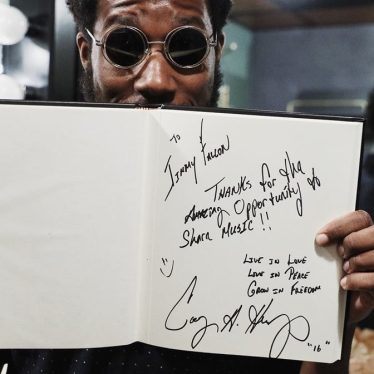 To
Jimmy Fallon
Thanks for tha
Amazing Opportunity to
Share Music!!
Live in Love
Live in Peace
Grow in Freedom
"16"